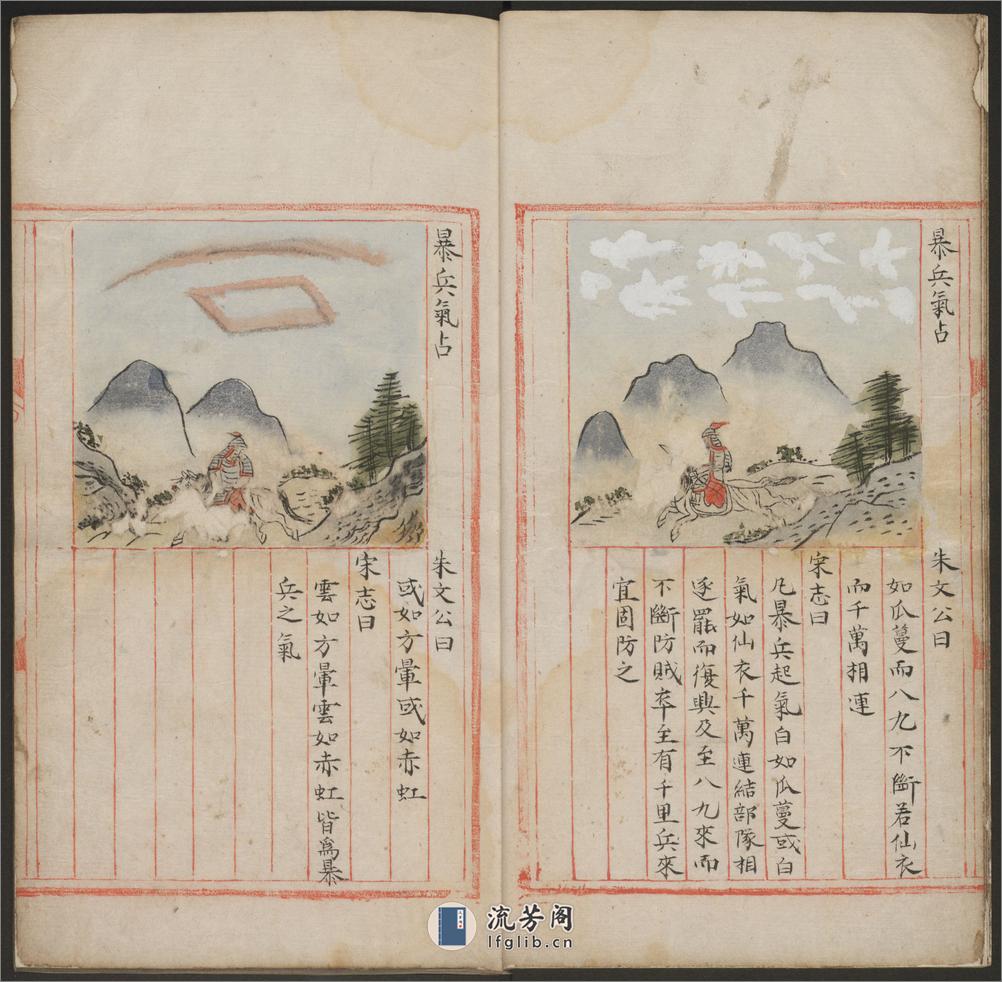 暴兵氣占
朱文公曰
如瓜蔓而八九不斷若仙衣
而千萬相連
宋志曰
凡暴兵起氣白如瓜蔓或白
氣如仙衣千萬連結部隊相
逐罷而復興及至八九來而
不斷防賊卒至有千里兵來
宜固防之
暴兵氣占
朱文公曰
或如方暈或如赤虹
宋志曰
雲如方暈雲如赤虹皆為暴
兵之氣
流芳阁
lfglib.cn